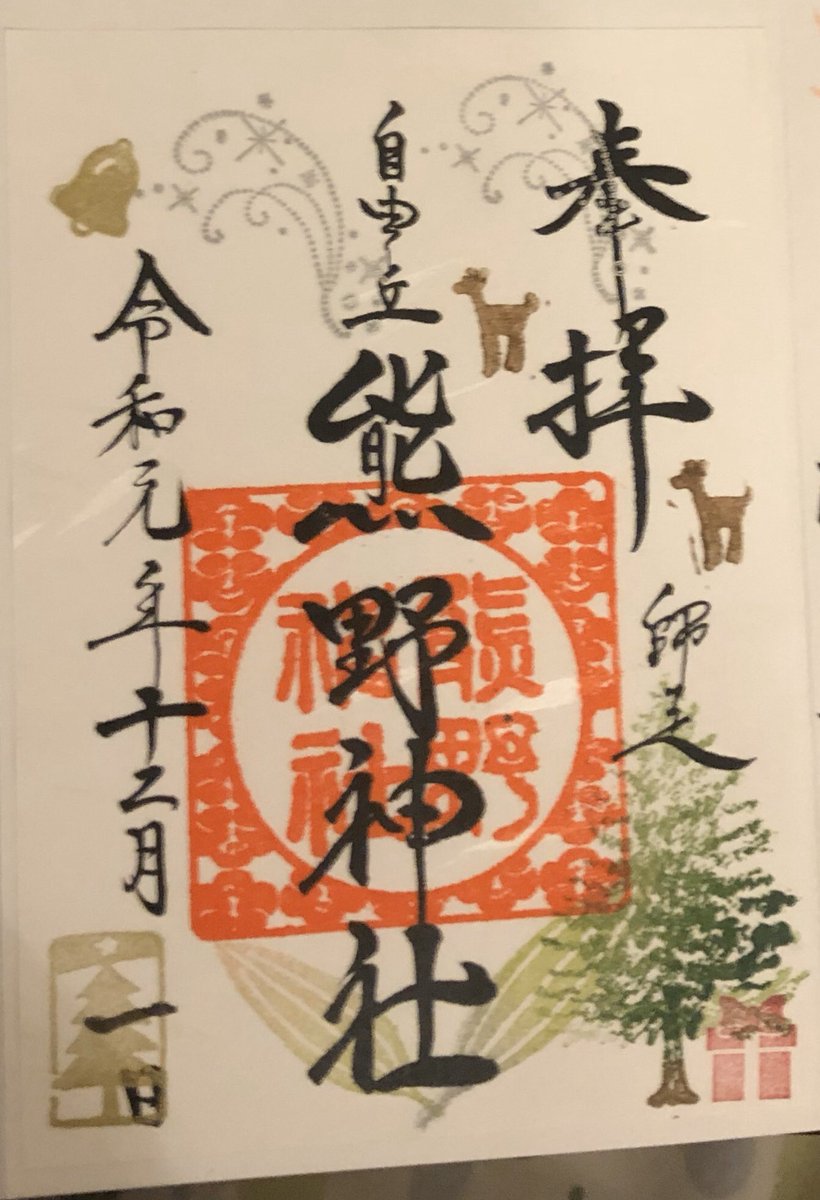 奉拝
師走
自由が丘
熊野神社
熊野
神社
令和元年十二月一日